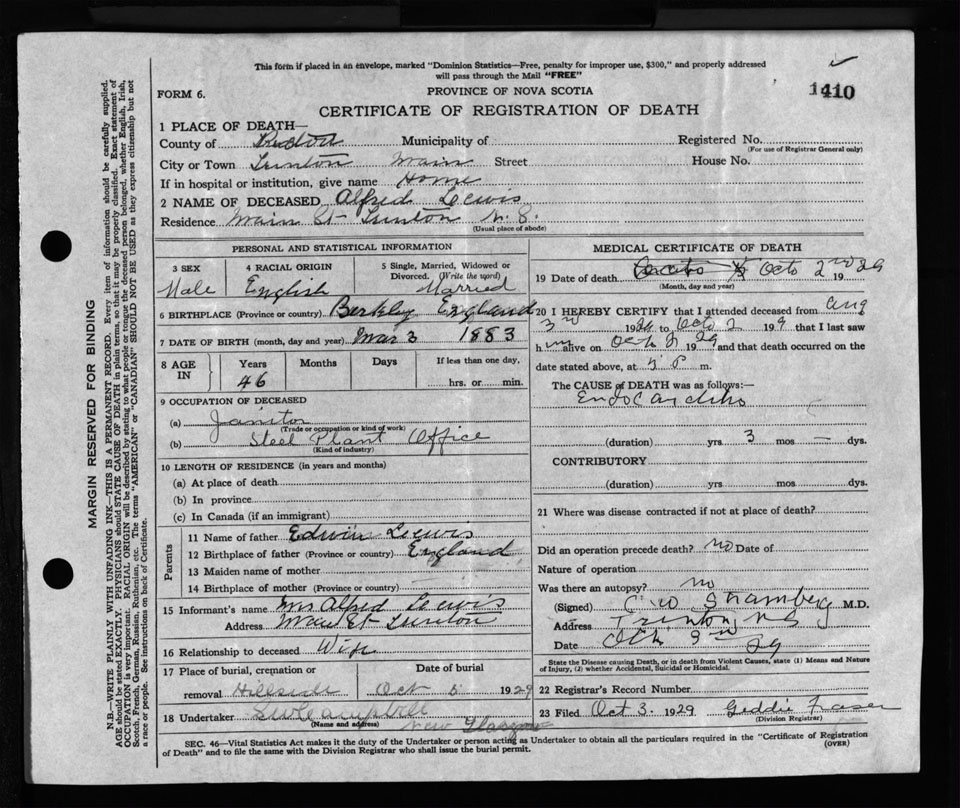 This form if placed in an envelope, marked "Dominion Statistics—Free, penalty for improper use, $300," and properly addressed
will pass through the Mail "FREE"
FORM 6.
PROVINCE OF NOVA SCOTIA
1410
CERTIFICATE OF REGISTRATION OF DEATH
1 PLACE OF DEATH—
County of Pictou Municipality of Registered No.
(For use of Registrar General only)
City or Town Trenton Main Street House No.
If in hospital or institution, give name Home
2 NAME OF DECEASED Alfred Lewis
Residence Main St Trenton N.S.
(Usual place of abode)
PERSONAL AND STATISTICAL INFORMATION
3 SEX
Male
4 RACIAL ORIGIN
English
5 Single, Married, Widowed or
Divorced. (Write the word)
Married
6 BIRTHPLACE (Province or country) Berkley England
7 DATE OF BIRTH (month, day and year) Mar 3 1883
8 AGE
IN
Years
46
Months
Days
If less than one day,
hrs. or min.
9 OCCUPATION OF DECEASED
(a) Janitor
(Trade or occupation or kind of work)
(b) Steel Plant Office
(Kind of industry)
10 LENGTH OF RESIDENCE (in years and months)
(a) At place of death
(b) In province
(c) In Canada (if an immigrant)
Parents
11 Name of father Edwin Lewis
12 Birthplace of father (Province or country) England
13 Maiden name of mother —
14 Birthplace of mother (Province or country)
15 Informant's name Mrs Alfred Lewis
Address Main St Trenton
16 Relationship to deceased Wife
17 Place of burial, cremation or
removal Hillside
Date of burial
Oct 5 1929
18 Undertaker Campbell New Glasgow
(Name and address)
MEDICAL CERTIFICATE OF DEATH
19 Date of death Octo 2nd 1929
(Month, day and year)
20 I HEREBY CERTIFY that I attended deceased from Aug
3rd 1929 to Octo 2 19 9 that I last saw
h im alive on Octo 2 1929 and that death occurred on the
date stated above, at P m.
The CAUSE of DEATH was as follows:—
Endocarditis
(duration) yrs 3 mos — dys.
CONTRIBUTORY
(duration) yrs. mos. dys.
21 Where was disease contracted if not at place of death?
Did an operation precede death? no Date of
Nature of operation
Was there an autopsy? no
(Signed) M.D.
Address Trenton NS
Date 29
State the Disease causing Death, or in death from Violent Causes, state (1) Means and Nature
of Injury, (2) whether Accidental, Suicidal or Homicidal.
22 Registrar's Record Number
23 Filed Oct 3. 1929 Geddie Fraser
(Division Registrar)
SEC. 46—Vital Statistics Act makes it the duty of the Undertaker or person acting as Undertaker to obtain all the particulars required in the "Certificate of Registration
of Death" and to file the same with the Division Registrar who shall issue the burial permit.
(OVER)
MARGIN RESERVED FOR BINDING
N.B.—WRITE PLAINLY WITH UNFADING INK—THIS IS A PERMANENT RECORD. Every item of information should be carefully supplied.
AGE should be stated EXACTLY. PHYSICIANS should STATE CAUSE OF DEATH in plain terms, so that it may be properly classified. Exact statement of
OCCUPATION is very important. RACIAL ORIGIN will be described by stating to what people or tongue the deceased person belonged, whether English, Irish,
Scotch, French, German, Russian, Ruthenian, etc. The terms "AMERICAN" or "CANADIAN" SHOULD NOT BE USED as they express citizenship but not
a race or people. See instructions on back of Certificate.